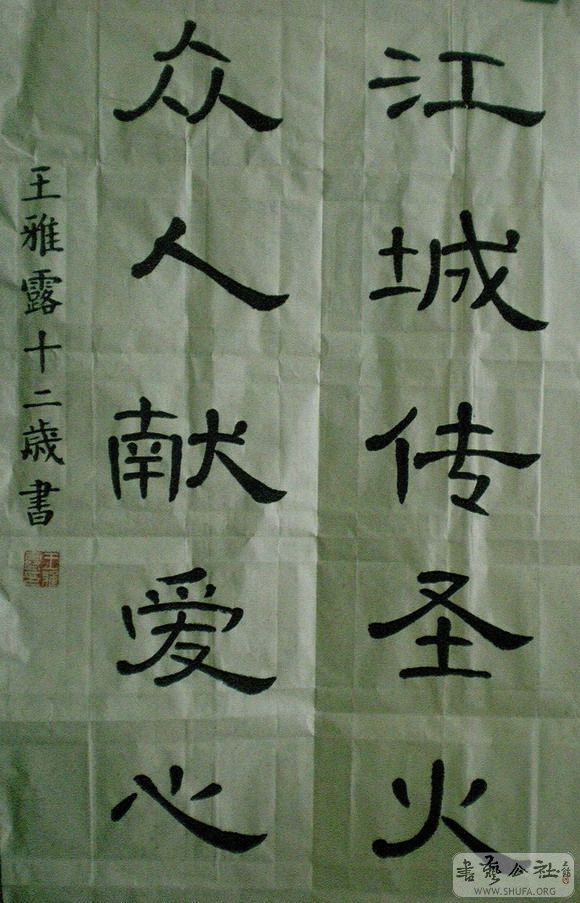 江城传圣火
众人献爱心
王雅露十二歲書
書艺公社
WWW.SHUFA.ORG